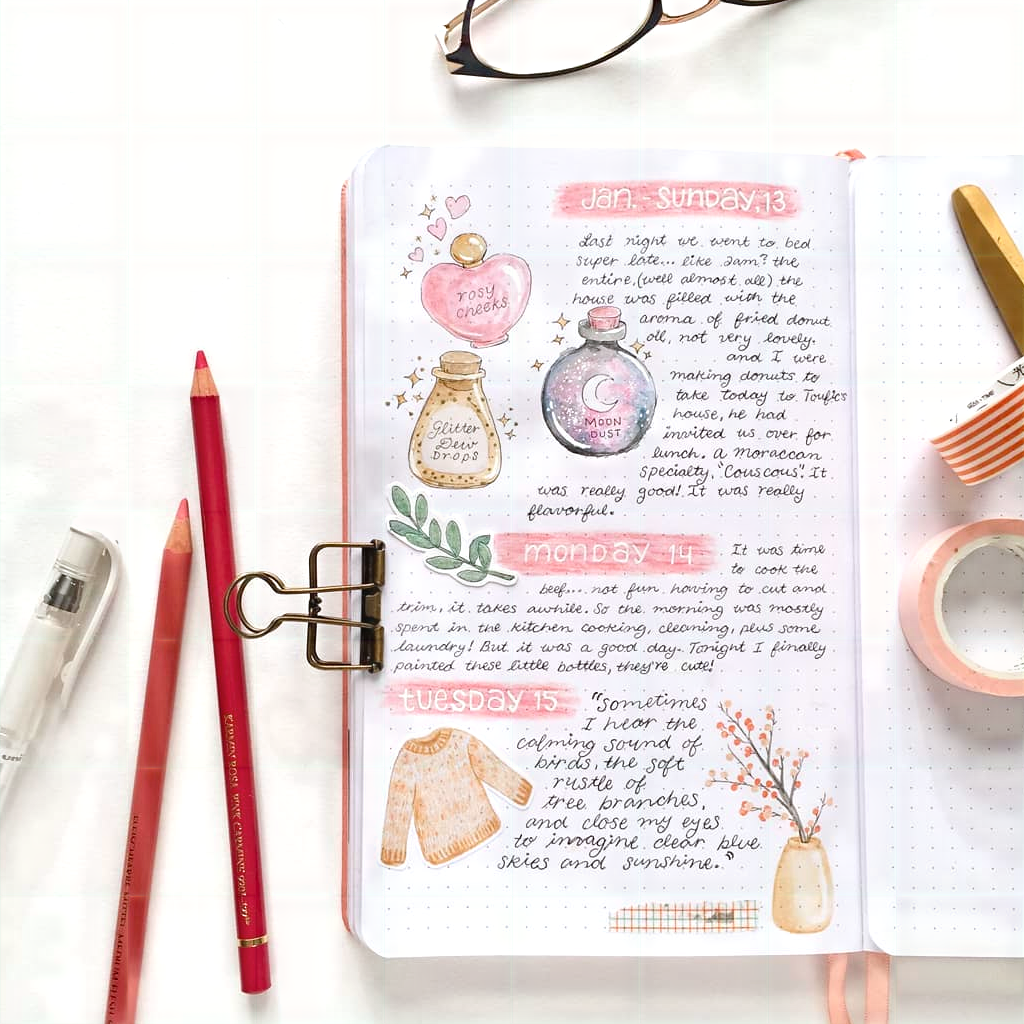 Jan. - Sunday, 13
Last night we went to bed
super late... like 2am? the
entire, (well almost all) the
house was filled with the
aroma of fried donut
oil, not very lovely.
and I were
making donuts to
take today to Toufic's
house, he had
invited us over for
lunch. a moraccan
specialty, "Couscous". It
was really good! It was really
flavorful.
rosy
cheeks
Glitter
Dew
Drops
MOON
DUST
monday 14
It was time
to cook the
beef... not fun having to cut and
trim, it takes awhile. So the morning was mostly
spent in the kitchen cooking, cleaning, plus some
laundry! But it was a good day. Tonight I finally
painted these little bottles, they're cute!
tuesday 15
"sometimes
I hear the
calming sound of
birds, the soft
rustle of
tree branches,
and close my eyes
to imagine clear blue
skies and sunshine."